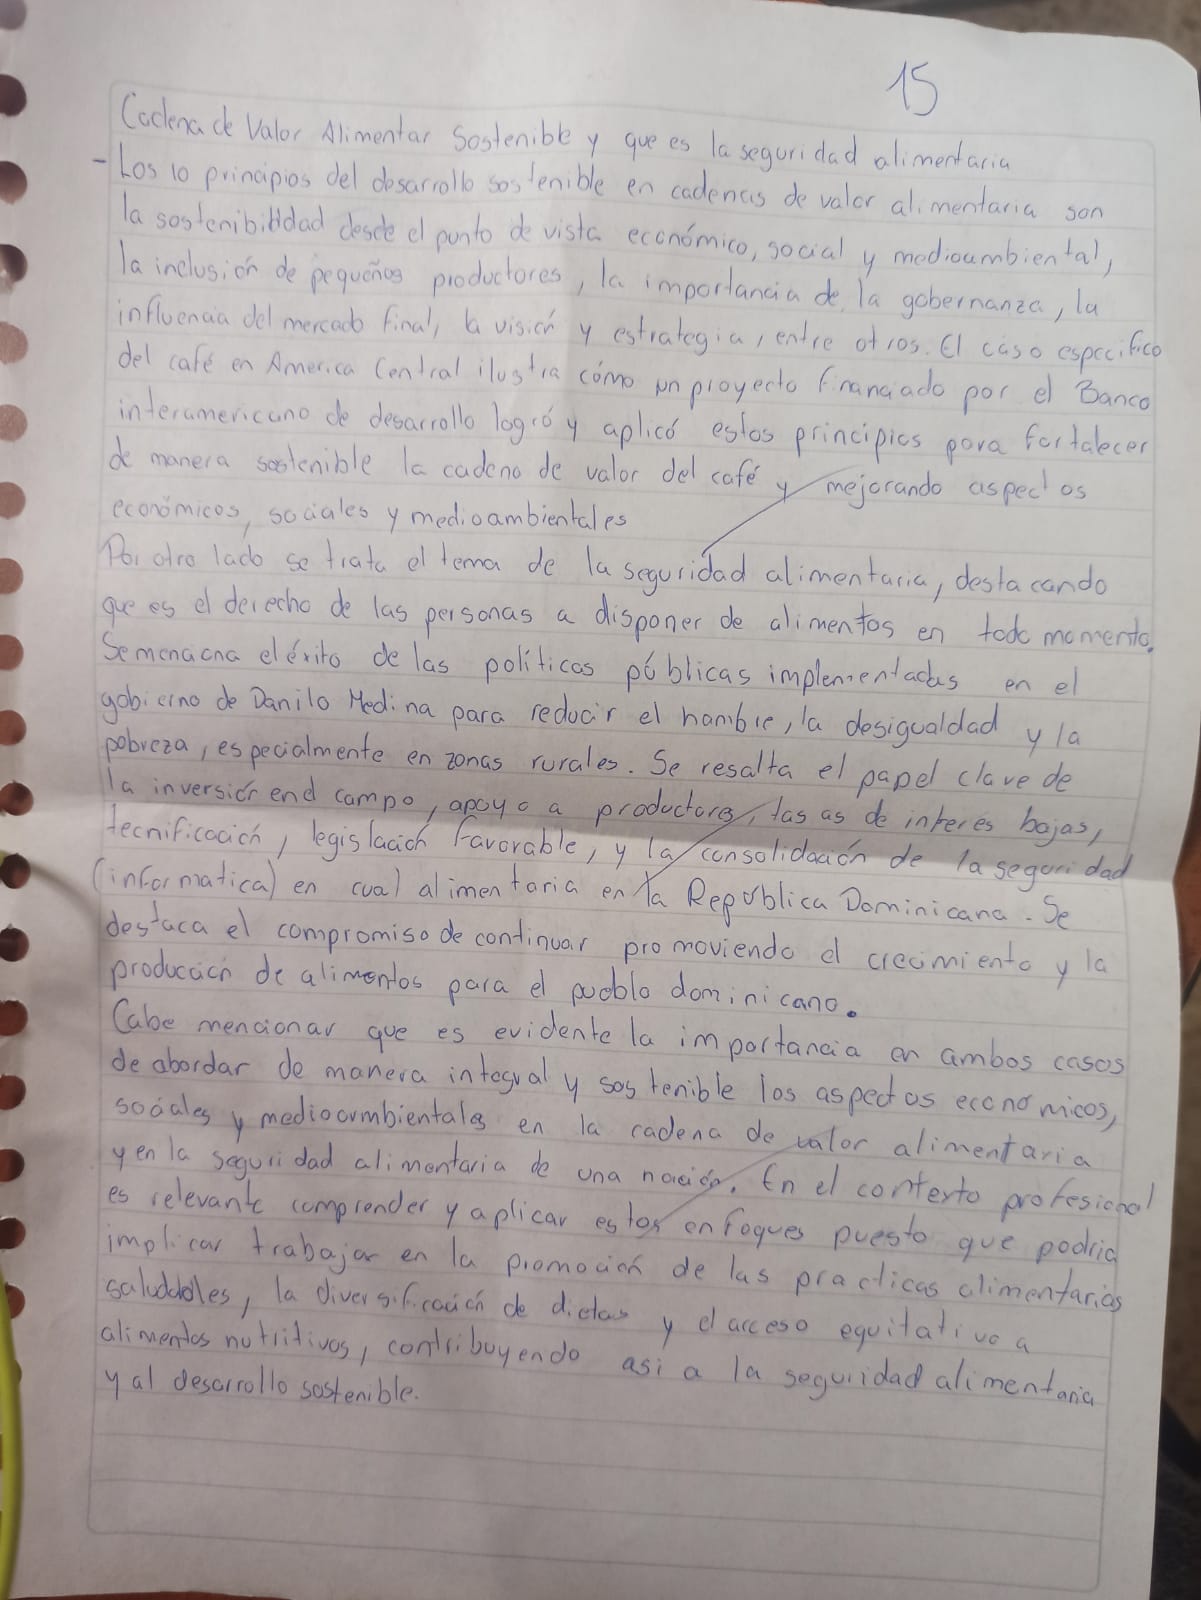 15
Cadena de Valor Alimentar Sostenible y que es la seguridad alimentaria
- Los 10 principios del desarrollo sostenible en cadenas de valor alimentaria son
la sostenibilidad desde el punto de vista económico, social y medioambiental,
la inclusión de pequeños productores, la importancia de la gobernanza, la
influencia del mercado final, la visión y estrategia, entre otros. El caso especifico
del café en America Central ilustra cómo un proyecto financiado por el Banco
interamericano de desarrollo logró y aplicó estos principios para fortalecer
de manera sostenible la cadena de valor del café y mejorando aspectos
económicos, sociales y medioambientales
Por otro lado se trata el tema de la seguridad alimentaria, destacando
que es el derecho de las personas a disponer de alimentos en todo momento.
Se menciona el éxito de las políticas públicas implementadas en el
gobierno de Danilo Medina para reducir el hambre, la desigualdad y la
pobreza, especialmente en zonas rurales. Se resalta el papel clave de
la inversión en el campo, apoyo a productores, tasas de interés bajas,
tecnificación, legislación favorable, y la consolidación de la seguridad
(informatica) en cual alimentaria en la República Dominicana. Se
destaca el compromiso de continuar promoviendo el crecimiento y la
producción de alimentos para el pueblo dominicano.
Cabe mencionar que es evidente la importancia en ambos casos
de abordar de manera integral y sostenible los aspectos economicos,
sociales y medioambientales en la cadena de valor alimentaria
y en la seguridad alimentaria de una nación. En el contexto profesional
es relevante comprender y aplicar estos enfoques puesto que podria
implicar trabajar en la promoción de las practicas alimentarias
saludables, la diversificación de dietas y el acceso equitativo a
alimentos nutritivos, contribuyendo asi a la seguridad alimentaria
y al desarrollo sostenible.